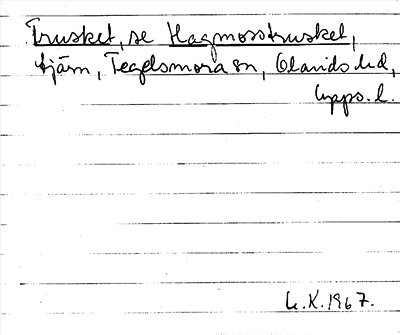 Trusket, se Hagmosstrusket,
tjärn, Tegelsmora sn, Olands hd,
Upps. l.
G.K. 1967.